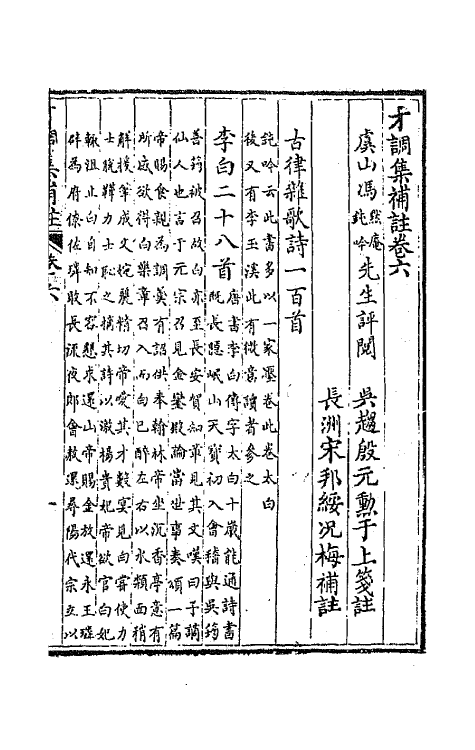 才調集補註卷六
虞山馮默庵鈍吟先生評閱
吳趨殷元勳于上箋註
長洲宋邦綏況梅補註
古律雜歌詩一百首
鈍吟云此書多以一家壓卷此卷太白
後又有李玉溪此有微意讀者參之
李白二十八首
唐書李白傳字太白十歲能通詩書
既長隱岷山天寶初入會稽與吳筠
善筠被召故白亦至長安賀知章見其文嘆曰子謫
仙人也言于元宗召見金鑾殿論當世事奏頌一篇
帝賜食親為調羹有詔供奉翰林帝坐沉香亭意有
所感欲得白樂章召入而白已醉左右以水頮面稍
解援筆成文婉麗精切帝愛其才數宴見白嘗使力
士脫鞾力士恥之摘其詩以激楊貴妃帝欲官白妃
輒沮止白自知不容懇求還山帝賜金放還永王璘
辟為府僚佐璘敗長流夜郎會赦還尋陽代宗立以
才調集補註
卷六
一